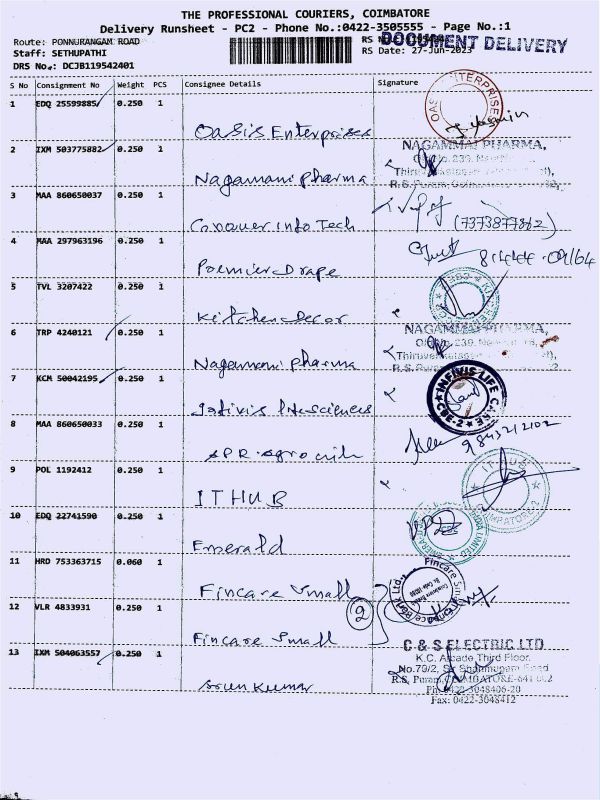 THE PROFESSIONAL COURIERS, COIMBATORE
Delivery Runsheet - PC2 - Phone No.:0422-3505555 - Page No.:1
Route: PONNURANGAM ROAD
Staff: SETHUPATHI
DRS No.: DCJB119542401
RS
DOCUMENT DELIVERY
RS Date: 27-Jun-2023
S No Consignment No Weight PCS Consignee Details Signature
1 EDQ 25599885 0.250 1 Oasis Enterprises
OASIS ENTERPRISES
2 IXM 503775882 0.250 1 Nagamani Pharma
NAGAMMAI PHARMA,
R.S. Puram,
3 MAA 860650037 0.250 1 Conquer Info Tech
(7373877862)
4 MAA 297963196 0.250 1 Premier Drape
5 TVL 3207422 0.250 1 Kitchen Decor
6 TRP 4240121 0.250 1 Nagamani Pharma
NAGAMMAI PHARMA,
R.S. Puram
7 KCM 50042195 0.250 1 Infivis lifesciences
INFIVIS LIFE CARE
CBE-2
8 MAA 860650033 0.250 1
9843212102
9 POL 1192412 0.250 1 IT HUB
IT HUB
COIMBATORE-2
10 EDQ 22741590 0.250 1 Emerald
11 HRD 753363715 0.060 1 Fincare Small
Fincare Small
2
12 VLR 4833931 0.250 1 Fincare Small
13 IXM 504063557 0.250 1 Arun Kumar
C & S ELECTRIC LTD
K.C. Arcade Third Floor,
No.79/2, Sir Shanmugam Road
R.S. Puram, COIMBATORE-641 002
Ph:0422-3048406-20
Fax: 0422-3048412